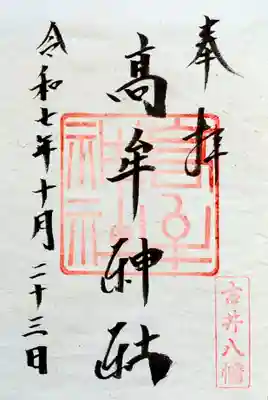 奉拝
高牟神社
令和七年十月二十三日
古井八幡
高牟神社